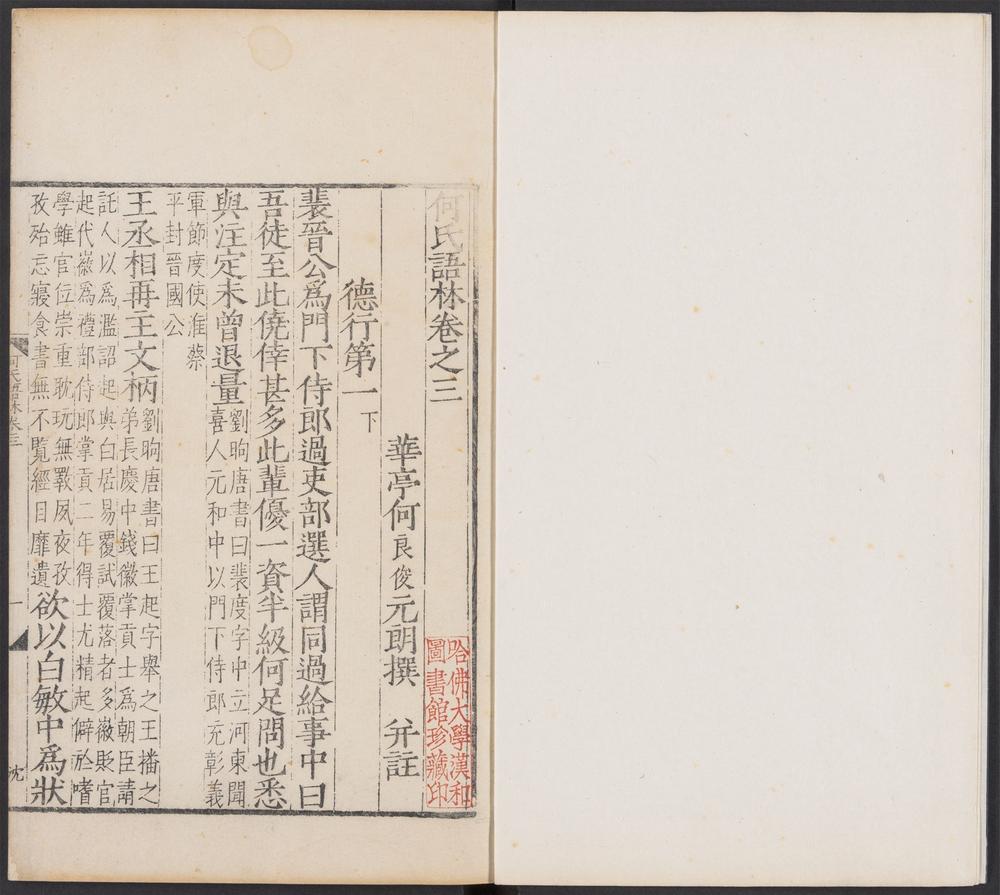 何氏語林卷之三
華亭何良俊元朗撰 并註
德行第一下
裴晉公為門下侍郎過吏部選人謂同過給事中曰
吾徒至此僥倖甚多此輩優一資半級何足問也悉
與注定未曾退量劉昫唐書曰裴度字中立河東聞
喜人元和中以門下侍郎充彰義
軍節度使淮蔡
平封晉國公
王丞相再主文柄劉昫唐書曰王起字舉之王播之
弟長慶中錢徽掌貢士為朝臣請
託人以為濫詔起與白居易覆試覆落者多徽貶官
起代徽為禮部侍郎掌貢二年得士尤精起僻於嗜
學雖官位崇重耽玩無斁夙夜孜
孜殆忘寢食書無不覽經目靡遺欲以白敏中為狀
何氏語林卷三
一
沈
哈佛大學漢和
圖書館珍藏印